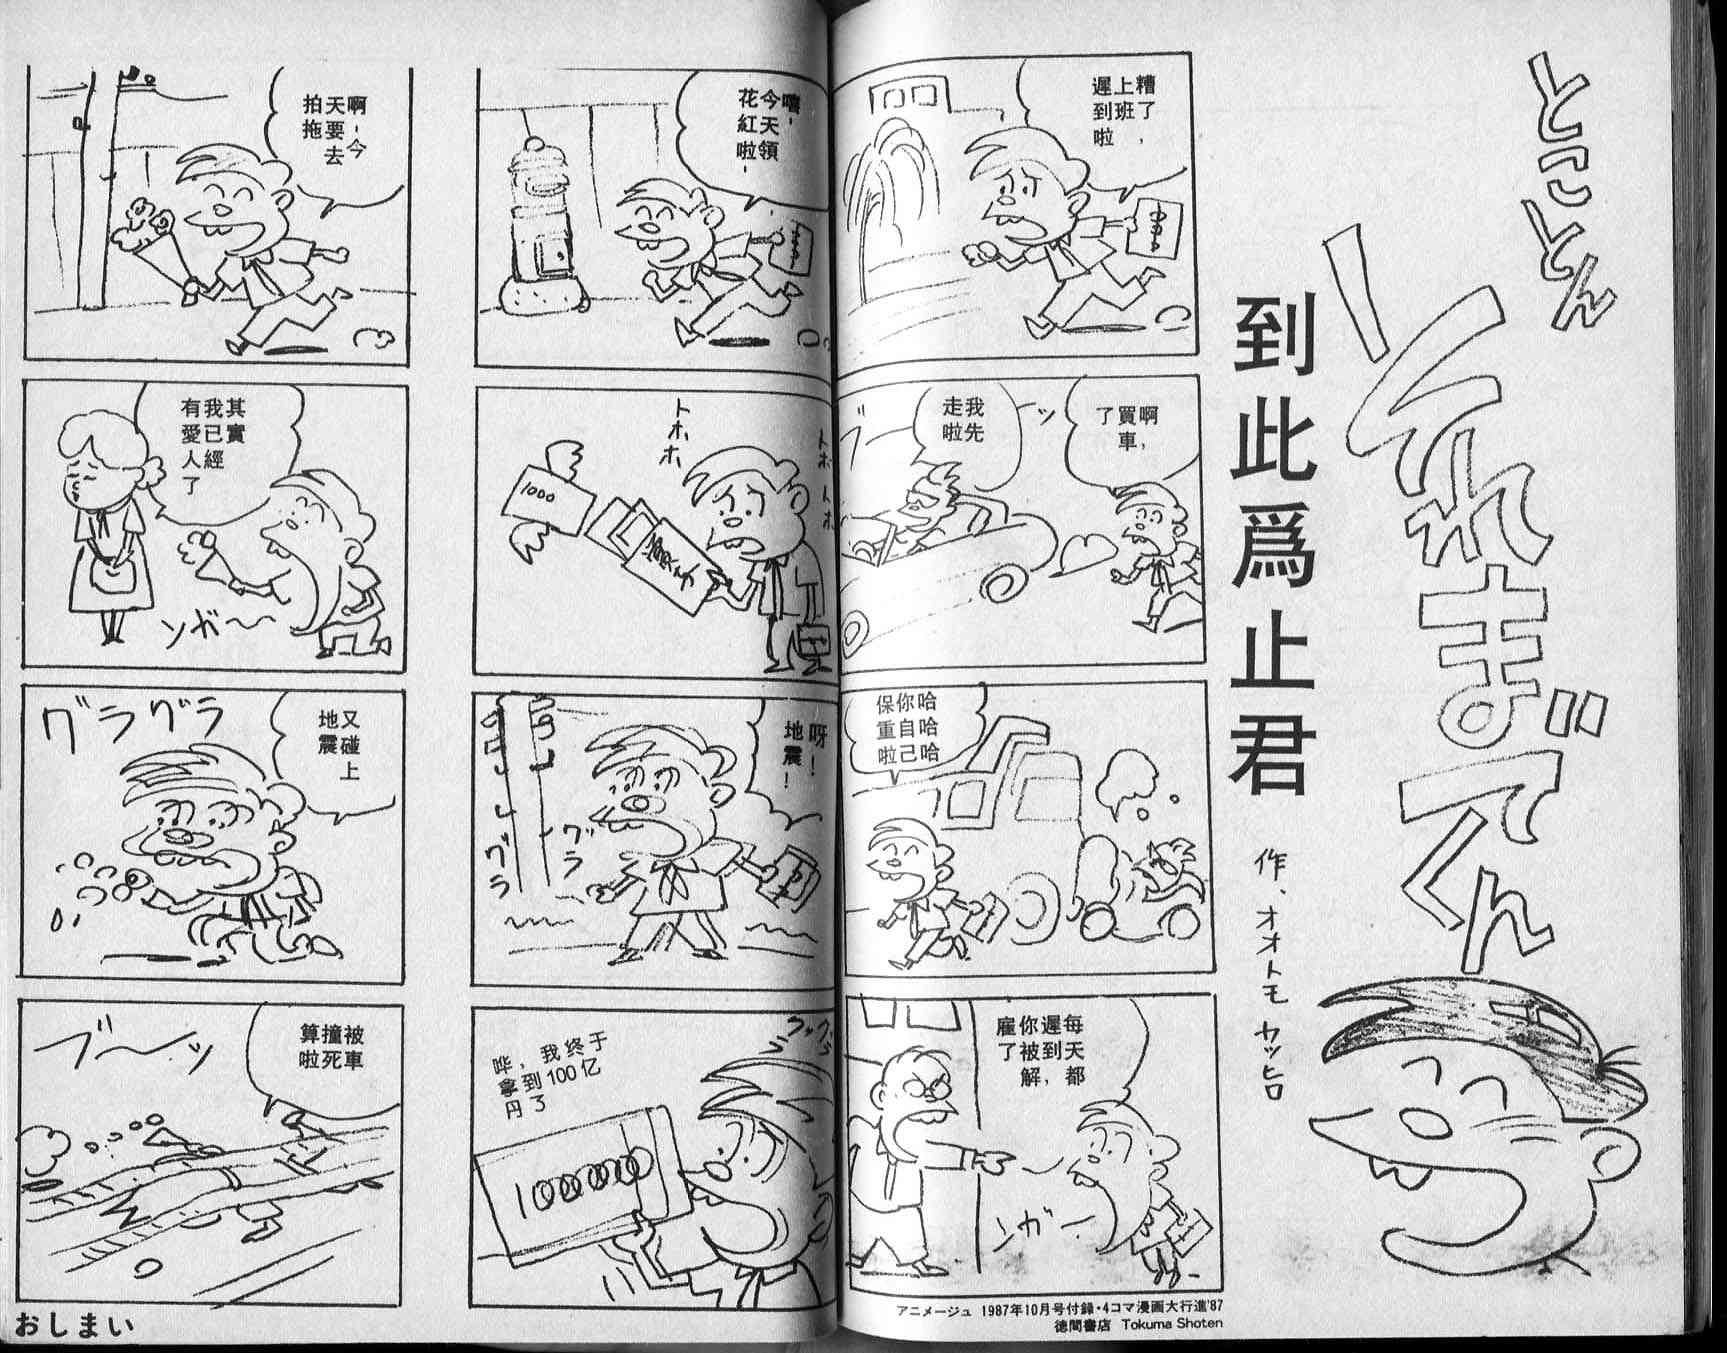 とことん
それまでくん
到此爲止君
作、オオトモ カツヒロ
糟了，
上班
遲到啦
啊，
買車
了
我先
走啦
ブーッ
哈哈哈
你自己
保重啦
每天都
遲到，
你被解
雇了
ンガー
嘻，
今天領
花紅啦，
トホホ
トホホ
1000
賞与
呀！
地震！
グラ
グラ
哗，我终于
拿到100亿
円了
グッグッ
啊，今
天要去
拍拖
其實
我已經
有愛人了
ンガ〜
又碰上
地震
グラグラ
被車
撞死
算啦
ブ〜ッ
おしまい
アニメージュ 1987年10月号付録・4コマ漫画大行進'87
徳間書店 Tokuma Shoten